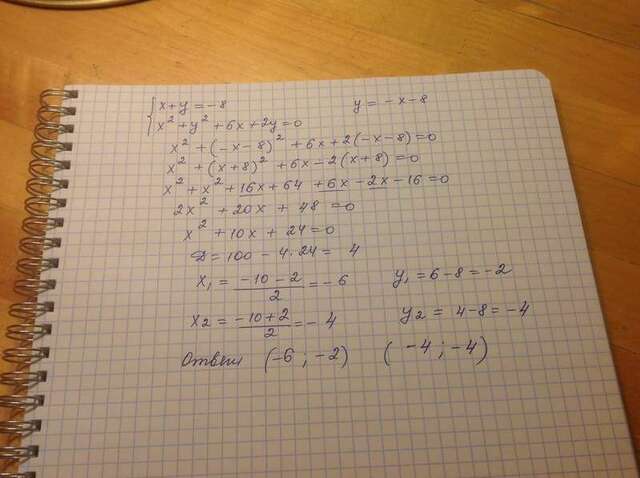 { x+y=-8          y = -x-8
x² + y² + 6x + 2y = 0
x² + (-x-8)² + 6x + 2(-x-8) = 0
x² + (x+8)² + 6x - 2(x+8) = 0
x² + x² + 16x + 64 + 6x - 2x - 16 = 0
2x² + 20x + 48 = 0
x² + 10x + 24 = 0
D = 100 - 4·24 = 4
x₁ = (-10-2)/2 = -6     y₁ = 6-8 = -2
x₂ = (-10+2)/2 = -4     y₂ = 4-8 = -4
Ответ (-6; -2)   (-4; -4)